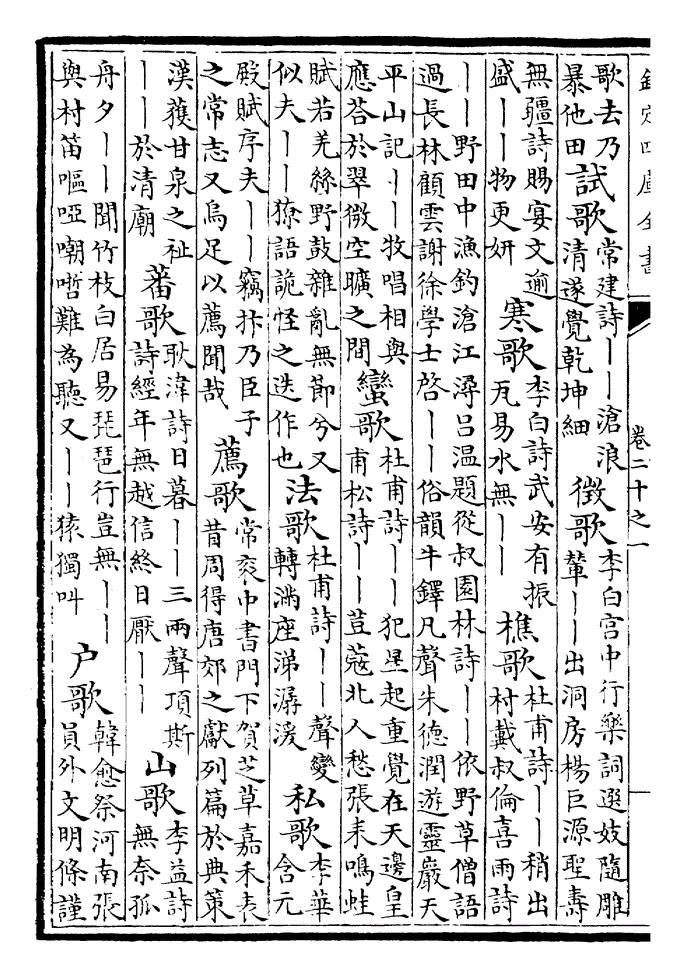 欽定四庫全書　卷二十之一
歌去乃暴他田試歌常建詩｜｜滄浪清遂覺乾坤細徵歌李白宮中行樂詞選妓隨雕輦｜｜出洞房楊巨源聖壽
無疆詩賜宴文逾盛｜｜物更妍寒歌李白詩武安有振瓦易水無｜｜樵歌杜甫詩｜｜稍出村戴叔倫喜雨詩
｜｜野田中漁釣滄江潯呂温題從叔園林詩｜｜依野草僧語過長林顧雲謝徐學士啓｜｜俗韻牛鐸凡聲朱德潤遊靈巖天
平山記｜｜牧唱相與應荅於翠微空曠之間蠻歌杜甫詩｜｜犯星起重覺在天邊皇甫松詩｜｜荳蔻北人愁張耒鳴蛙
賦若羌絲野鼓雜亂無節兮又似夫｜｜獠語詭怪之迭作也法歌杜甫詩｜｜聲變轉滿座涕潺湲私歌李華含元
殿賦序夫｜｜竊抃乃臣子之常志又烏足以薦聞哉薦歌常衮中書門下賀芝草嘉禾表昔周得唐郊之獻列篇於典策
漢獲甘泉之祉｜｜於清廟蕃歌耿湋詩日暮｜｜三兩聲項斯詩經年無越信終日厭｜｜山歌李益詩無奈孤
舟夕｜｜聞竹枝白居易琵琶行豈無｜｜與村笛嘔啞嘲哳難為聽又｜｜猿獨叫户歌韓愈祭河南張員外文明條謹